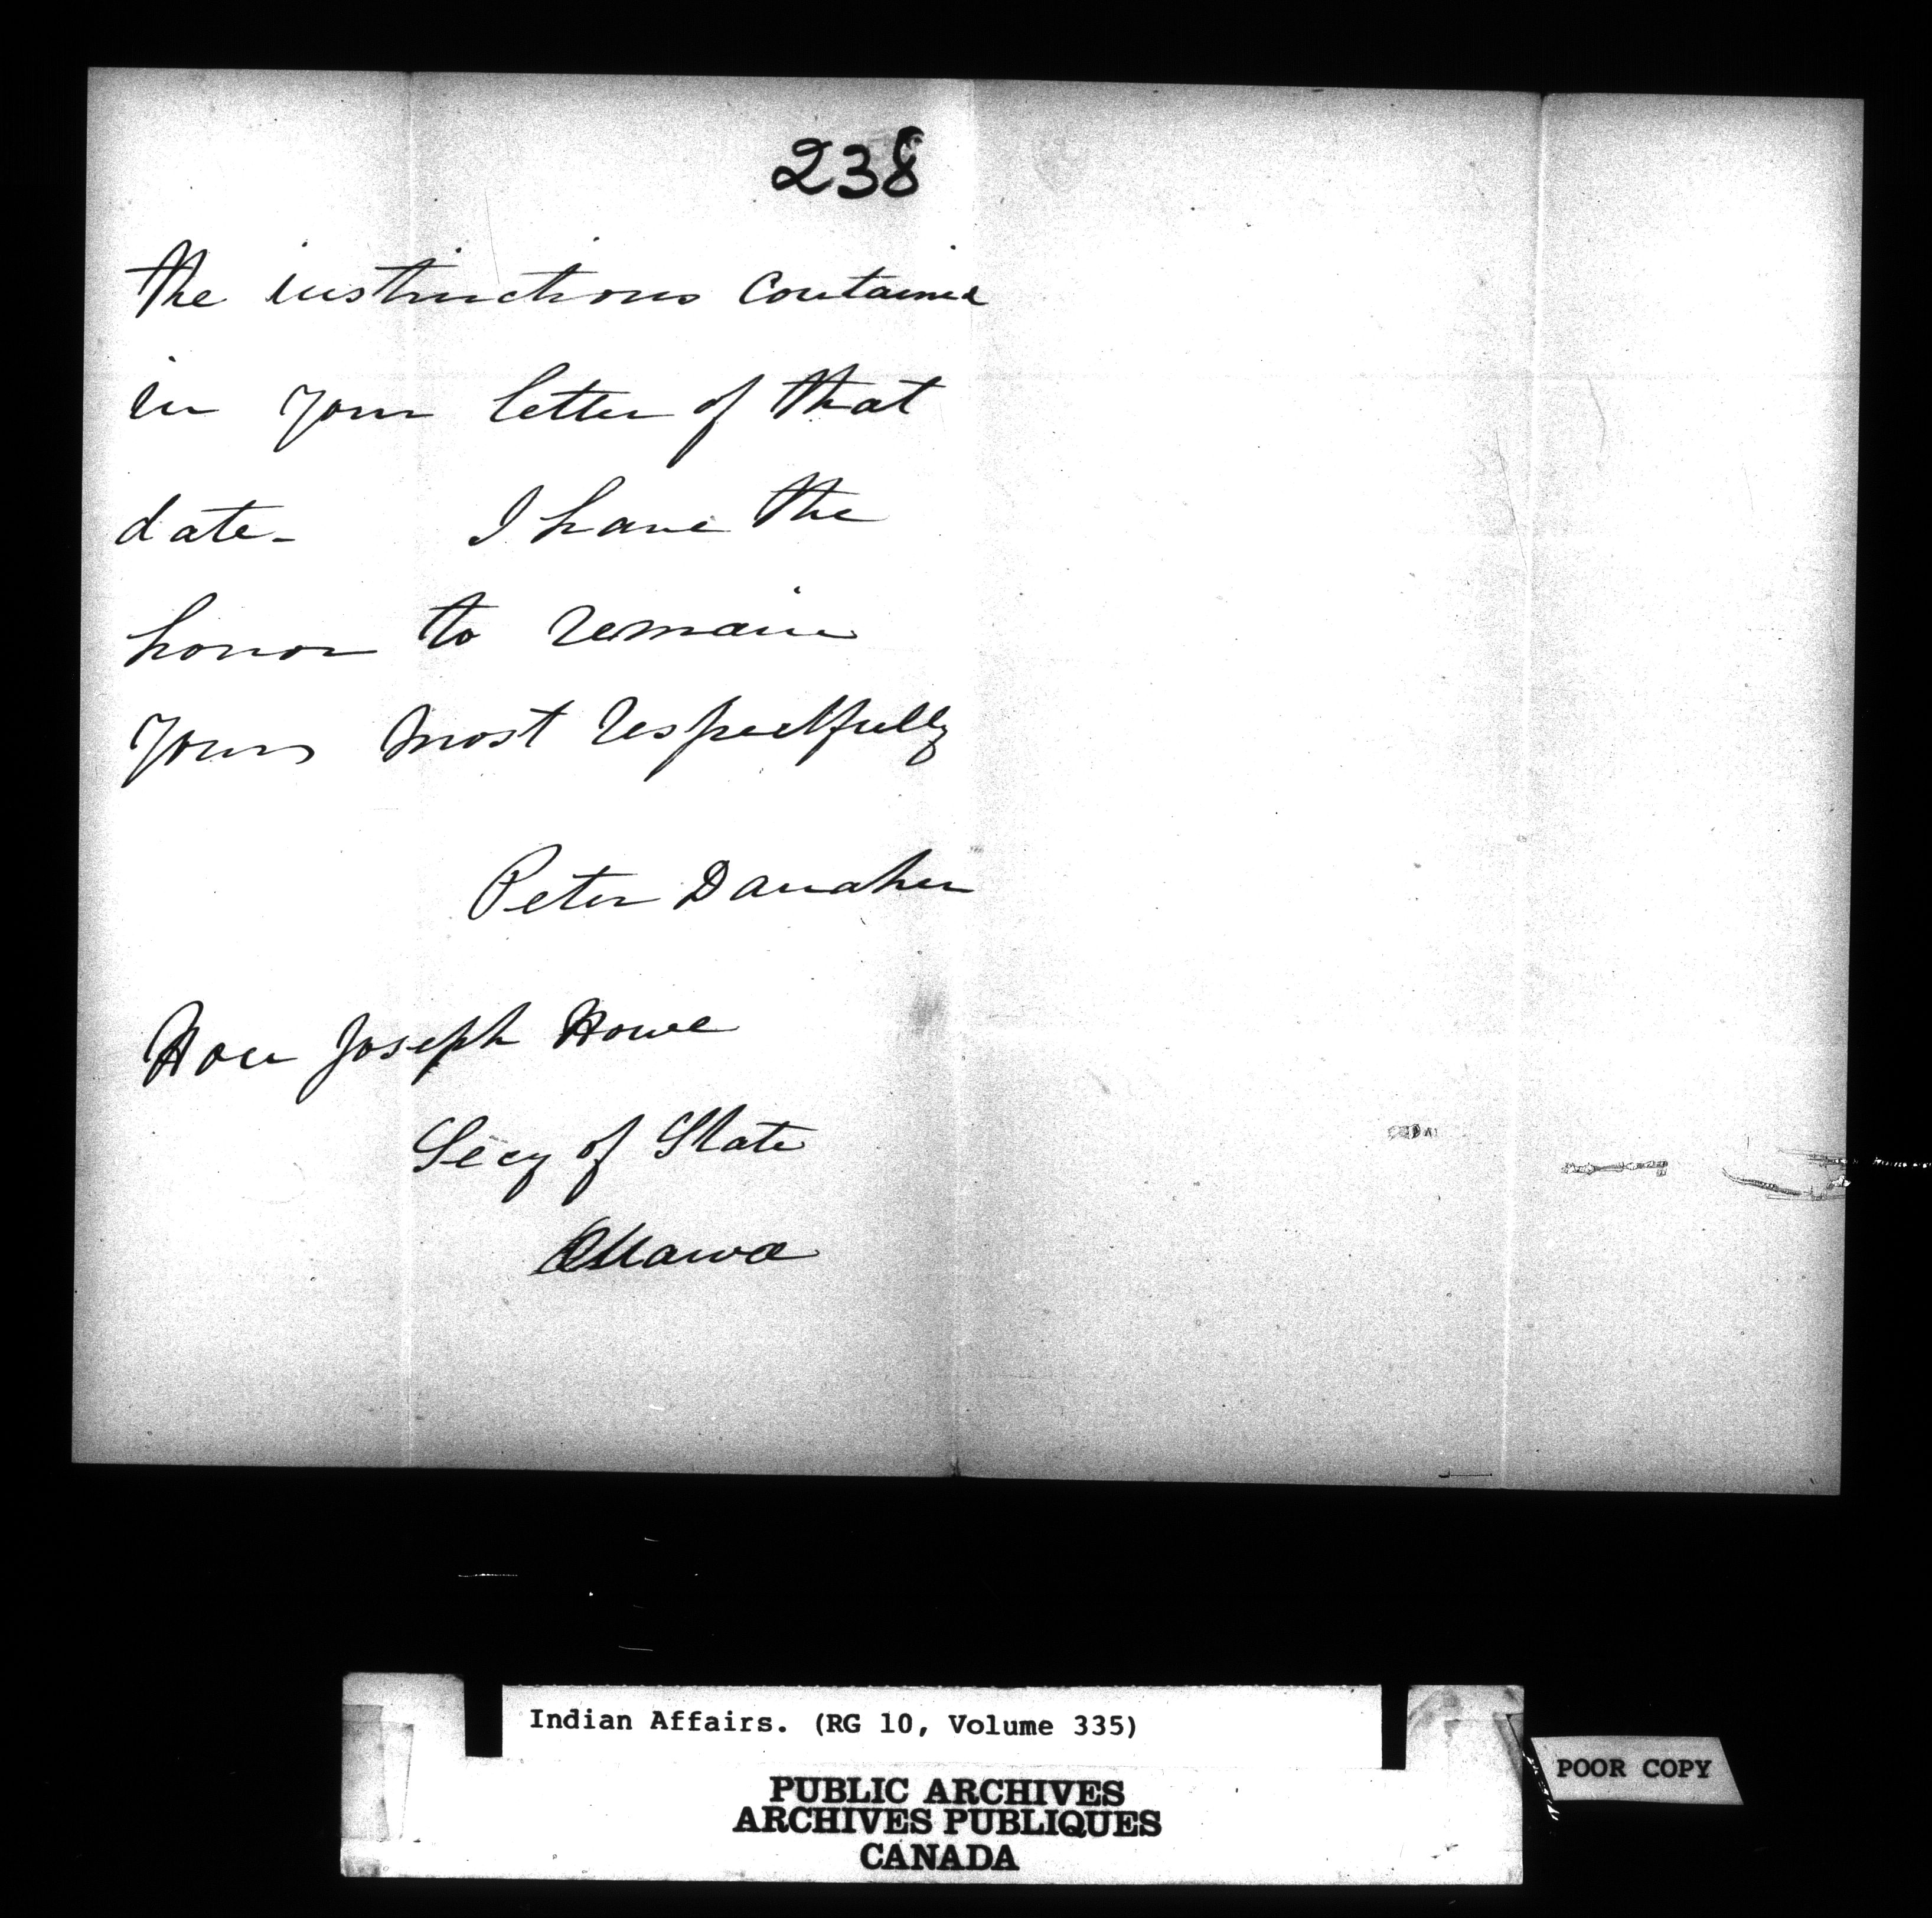 238
the instructions contained
in your letter of that
date - I have the
honor to remain
Yours most respectfully
Peter Danaher
Hon Joseph Howe
Secy of State
Ottawa
Indian Affairs. (RG 10, Volume 335)
PUBLIC ARCHIVES
ARCHIVES PUBLIQUES
CANADA
POOR COPY